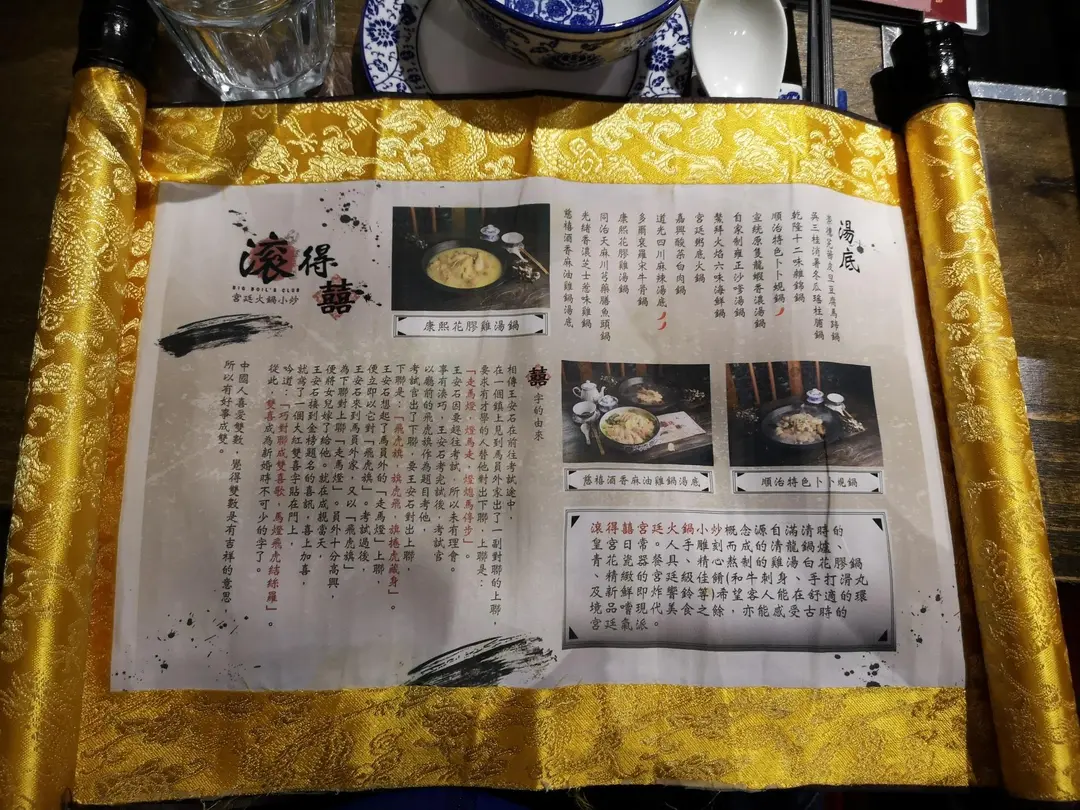 湯底
芫荽皮旦豆腐馬蹄鍋
吳三桂消暑冬瓜瑤柱脯鍋
乾隆十二味雜錦鍋
順治特色卜卜蜆鍋
宣統原隻龍蝦香濃湯鍋
自家制雍正沙嗲湯鍋
鰲拜火焰六味海鮮鍋
宮廷粥底火鍋
嘉興酸菜白肉鍋
道光四川麻辣湯底
多爾袞羅宋牛骨鍋
康熙花膠雞湯鍋
同治天麻川芎藥膳魚頭鍋
光緒香濃芝士味雞鍋
慈禧酒香麻油雞鍋湯底
康熙花膠雞湯鍋
滾得囍
BIG BOIL'S CLUB
宮廷火鍋小炒
順治特色卜卜蜆鍋
慈禧酒香麻油雞鍋湯底
滾得囍宮廷火鍋小炒概念源自滿清時的
皇宮日常。人手雕刻而成的清龍鍋爐、
青花瓷器的餐具、精心熬制的雞湯白花膠鍋
及精緻的宮廷級佳餚(和牛刺身、手打滑丸
新鮮即炸響鈴等)希望客人能在舒適的環
境品嚐現代美食之餘,亦能感受古時的
宮廷氣派。
囍字的由來
相傳王安石在前往考試途中,
在一個鎮上見到馬員外家出了一副對聯的上聯,
要求有才學的人替他對出下聯,上聯是:
「走馬燈,燈馬走,燈熄馬停步」。
王安石因要趕往考試,所以未有理會。
事有湊巧,王安石考完試後,考試官
以廳前的飛虎旗作為題目考他,
考試官出了下聯,要王安石對出上聯,
下聯是:「飛虎旗,旗虎飛,旗捲虎藏身」。
王安石想起了馬員外的「走馬燈」上聯
便立即以它對「飛虎旗」。考試過後,
王安石來到馬員外家,又以「飛虎旗」
為下聯對上聯「走馬燈」。員外十分高興,
便將女兒嫁了給他。就在成親當天,
王安石接到金榜題名的喜訊,喜上加喜,
就寫了一個大紅雙喜字貼在門上,
吟道:「巧對聯成雙喜歌,馬燈飛虎結絲羅」。
從此,雙喜成為新婚時不可少的字了。
中國人喜愛雙數,覺得雙數是有吉祥的意思,
所以有好事成雙。